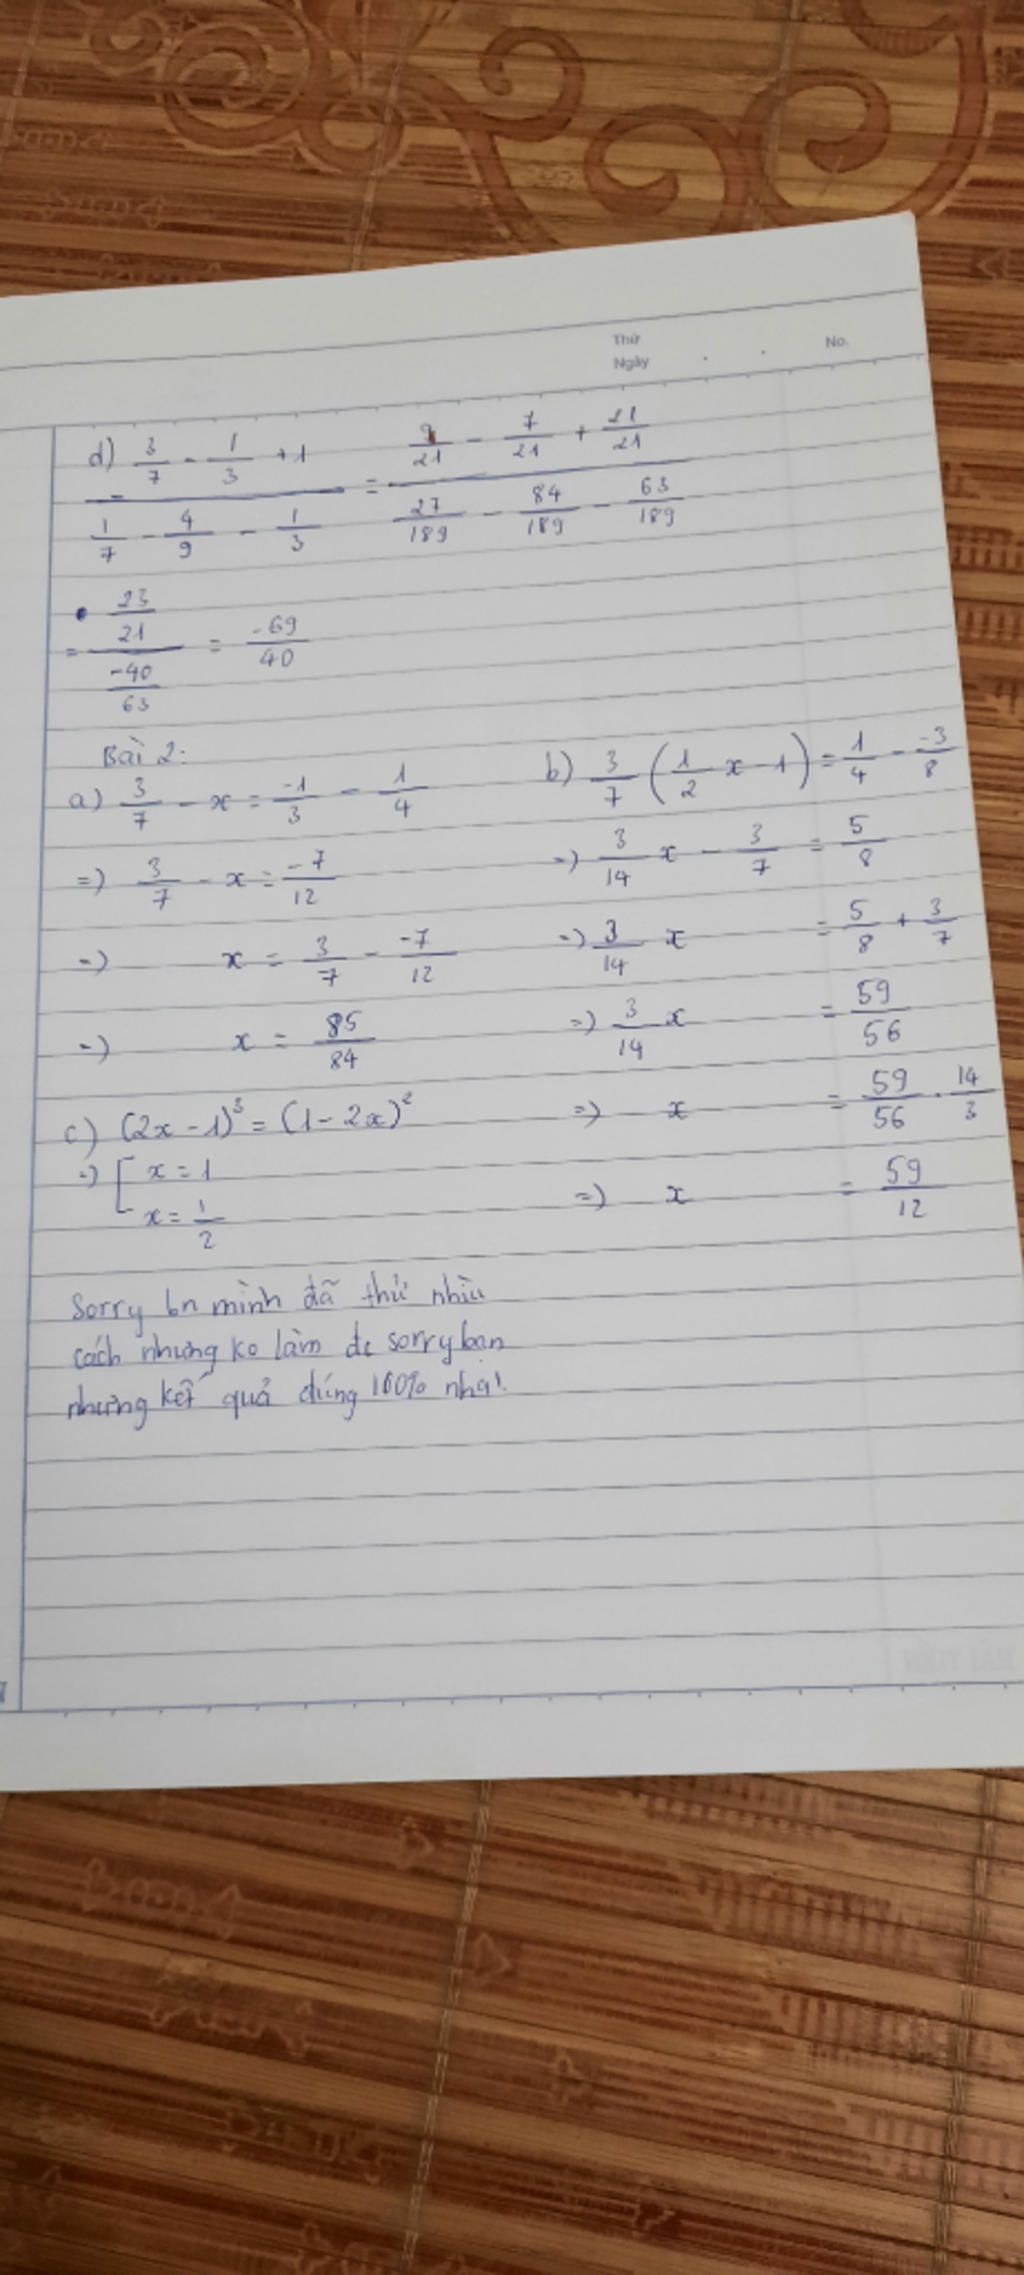 Thứ
Ngày . . No.
d) \frac{\frac{3}{7} - \frac{1}{3} + 1}{\frac{1}{7} - \frac{4}{9} - \frac{1}{3}} = \frac{\frac{9}{21} - \frac{7}{21} + \frac{21}{21}}{\frac{27}{189} - \frac{84}{189} - \frac{63}{189}}
= \frac{\frac{23}{21}}{\frac{-40}{63}} = \frac{-69}{40}
Bài 2:
a) \frac{3}{7} - x = \frac{-1}{3} - \frac{1}{4}
=) \frac{3}{7} - x = \frac{-7}{12}
=) x = \frac{3}{7} - \frac{-7}{12}
=) x = \frac{85}{84}
b) \frac{3}{7} (\frac{1}{2} x - 1) = \frac{1}{4} - \frac{-3}{8}
=) \frac{3}{14} x - \frac{3}{7} = \frac{5}{8}
=) \frac{3}{14} x = \frac{5}{8} + \frac{3}{7}
=) \frac{3}{14} x = \frac{59}{56}
=) x = \frac{59}{56} . \frac{14}{3}
=) x = \frac{59}{12}
c) (2x - 1)³ = (1 - 2x)²
=) [ x = 1
x = \frac{1}{2}
Sorry bn mình đã thử nhìu
cách nhưng ko làm đc sorry bạn
nhưng kết quả đúng 100% nha!